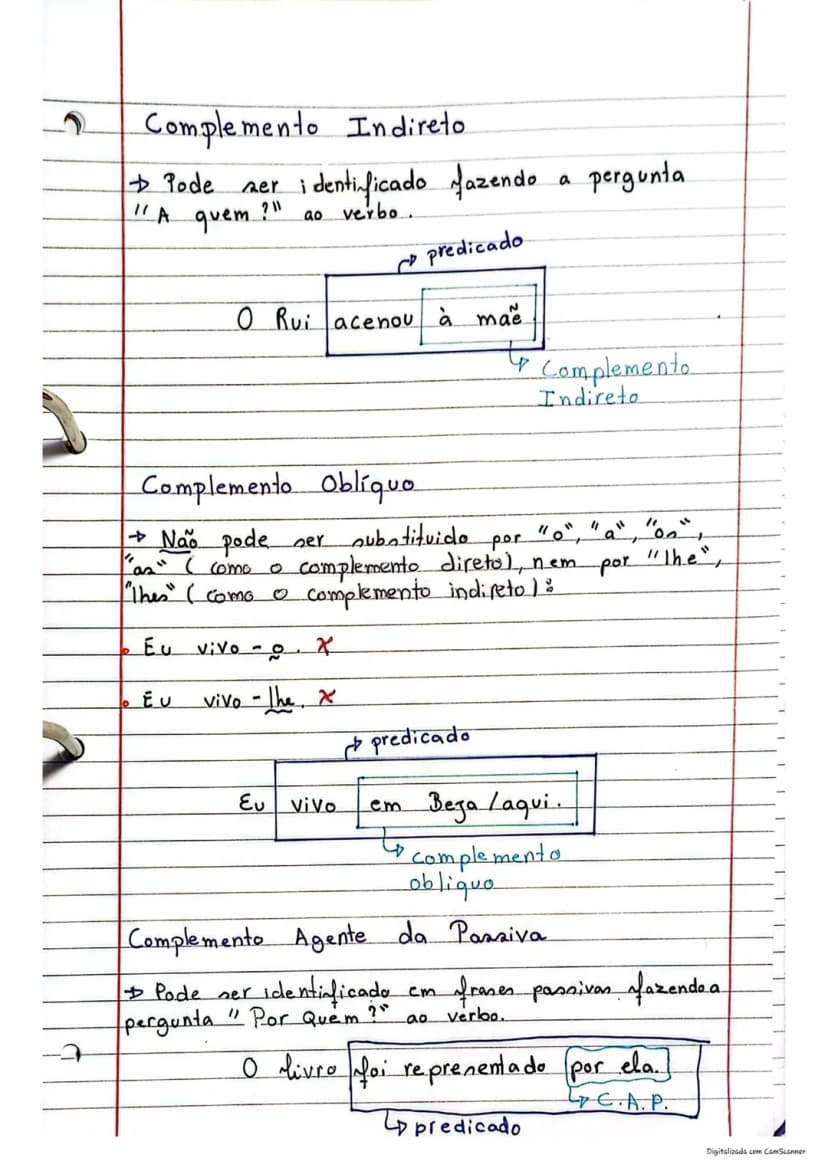 Complemento Indireto
→ Pode ser identificado fazendo a pergunta
"A quem?" ao verbo.
↱ predicado
O Rui acenou à mãe
↳ Complemento
Indireto
Complemento Oblíquo
→ Não pode ser substituido por "o", "a", "os",
"as" (como o complemento direto), nem por "lhe",
"lhes" (como o complemento indireto):
• Eu vivo-o. X
• Eu vivo-lhe. X
↱ predicado
Eu vivo em Beja/aqui.
↳ complemento
obliquo
Complemento Agente da Passiva
→ Pode ser identificado em frases passivas fazendo a
pergunta "Por Quem?" ao verbo.
O livro foi representado por ela.
↳ C.A.P.
↳ predicado
Digitalizada com CamScanner